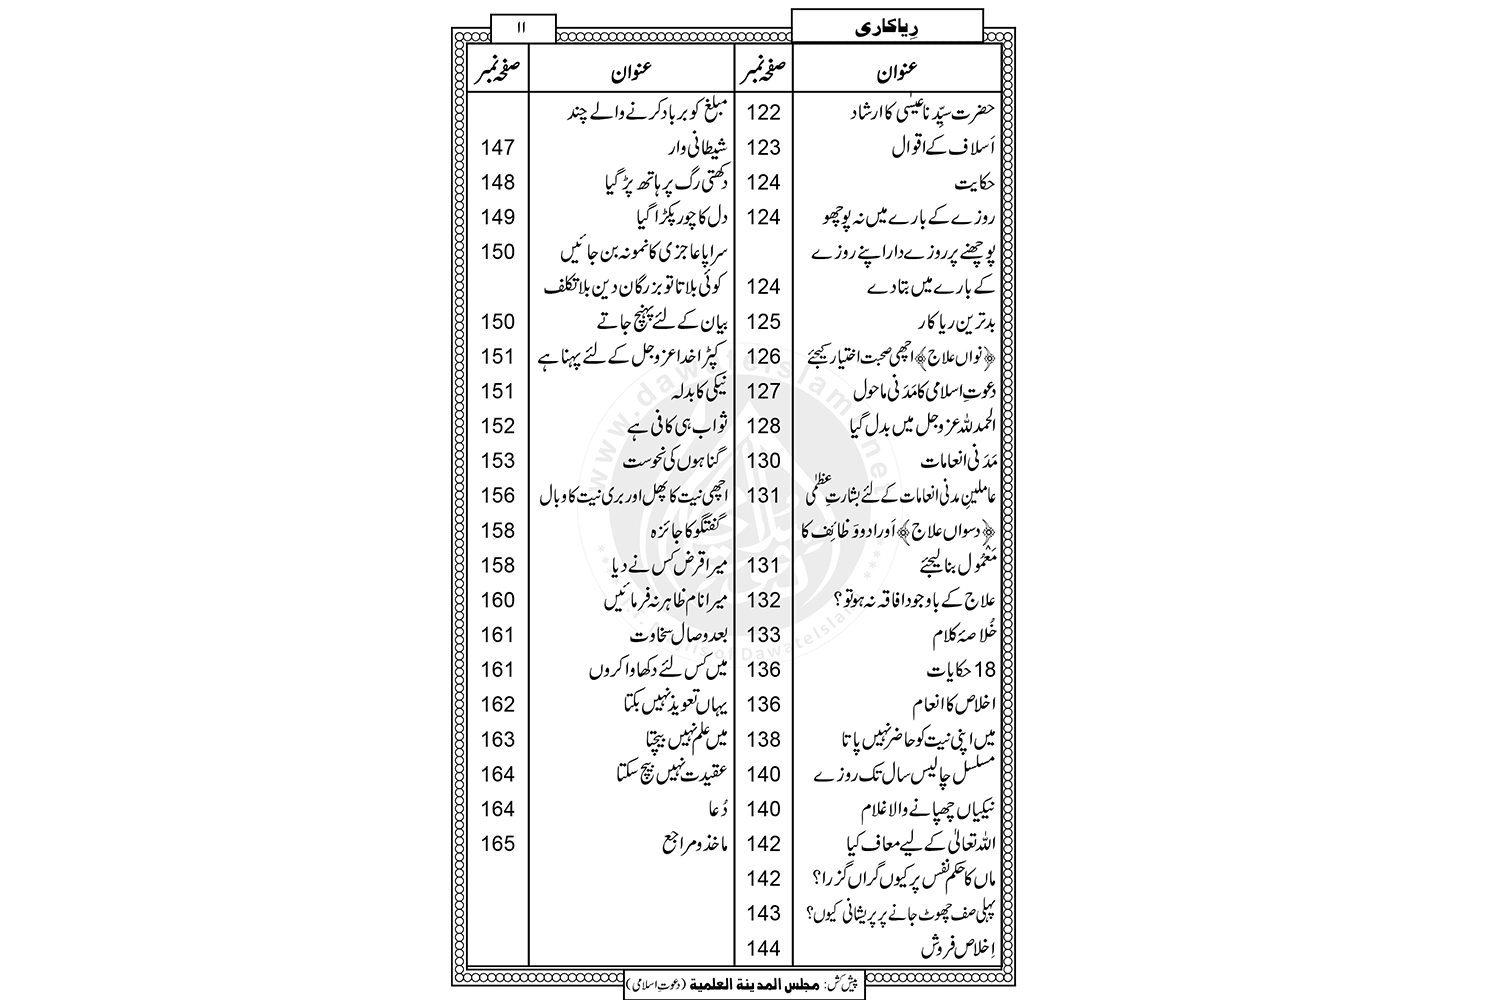 رِیاکاری
۱۱
عنوان صفحہ نمبر
حضرت سیِّدنا عیسٰی کا ارشاد 122
اَسلاف کے اقوال 123
حکایت 124
روزے کے بارے میں نہ پوچھو 124
پوچھنے پر روزے دار اپنے روزے
کے بارے میں بتا دے 124
بدترین ریاکار 125
﴿نواں علاج﴾ اچھی صحبت اختیار کیجئے 126
دعوتِ اسلامی کا مَدَنی ماحول 127
الحمدللہ عزوجل میں بدل گیا 128
مَدَنی انعامات 130
عاملینِ مدنی انعامات کے لئے بشارتِ عظمٰی 131
﴿دسواں علاج﴾ اَوراد و وَظائِف کا
مَعْمُول بنا لیجئے 131
علاج کے باوجود افاقہ نہ ہو تو؟ 132
خُلاصۂ کلام 133
18 حکایات 136
اخلاص کا انعام 136
میں اپنی نیت کو حاضر نہیں پاتا 138
مسلسل چالیس سال تک روزے 140
نیکیاں چھپانے والا غلام 140
اللہ تعالٰی کے لیے معاف کیا 142
ماں کا حکم نفس پر کیوں گراں گزرا؟ 142
پہلی صف چھوٹ جانے پر پریشانی کیوں؟ 143
اِخلاص فروش 144
عنوان صفحہ نمبر
مبلغ کو برباد کرنے والے چند
شیطانی وار 147
دکھتی رگ پر ہاتھ پڑ گیا 148
دل کا چور پکڑا گیا 149
سراپا عاجزی کا نمونہ بن جائیں 150
کوئی بلاتا تو بزرگان دین بلا تکلف
بیان کے لئے پہنچ جاتے 150
کپڑا خدا عزوجل کے لئے پہنا ہے 151
نیکی کا بدلہ 151
ثواب ہی کافی ہے 152
گناہوں کی نحوست 153
اچھی نیت کا پھل اور بری نیت کا وبال 156
گفتگو کا جائزہ 158
میرا قرض کس نے دیا 158
میرا نام ظاہر نہ فرمائیں 160
بعد وصال سخاوت 161
میں کس لئے دکھاوا کروں 161
یہاں تعویذ نہیں بکتا 162
میں علم نہیں بیچتا 163
عقیدت نہیں بیچ سکتا 164
دُعا 164
ماخذ و مراجع 165
پیش کش: مجلس المدینة العلمیة (دعوتِ اسلامی)
www.dawateislami.net